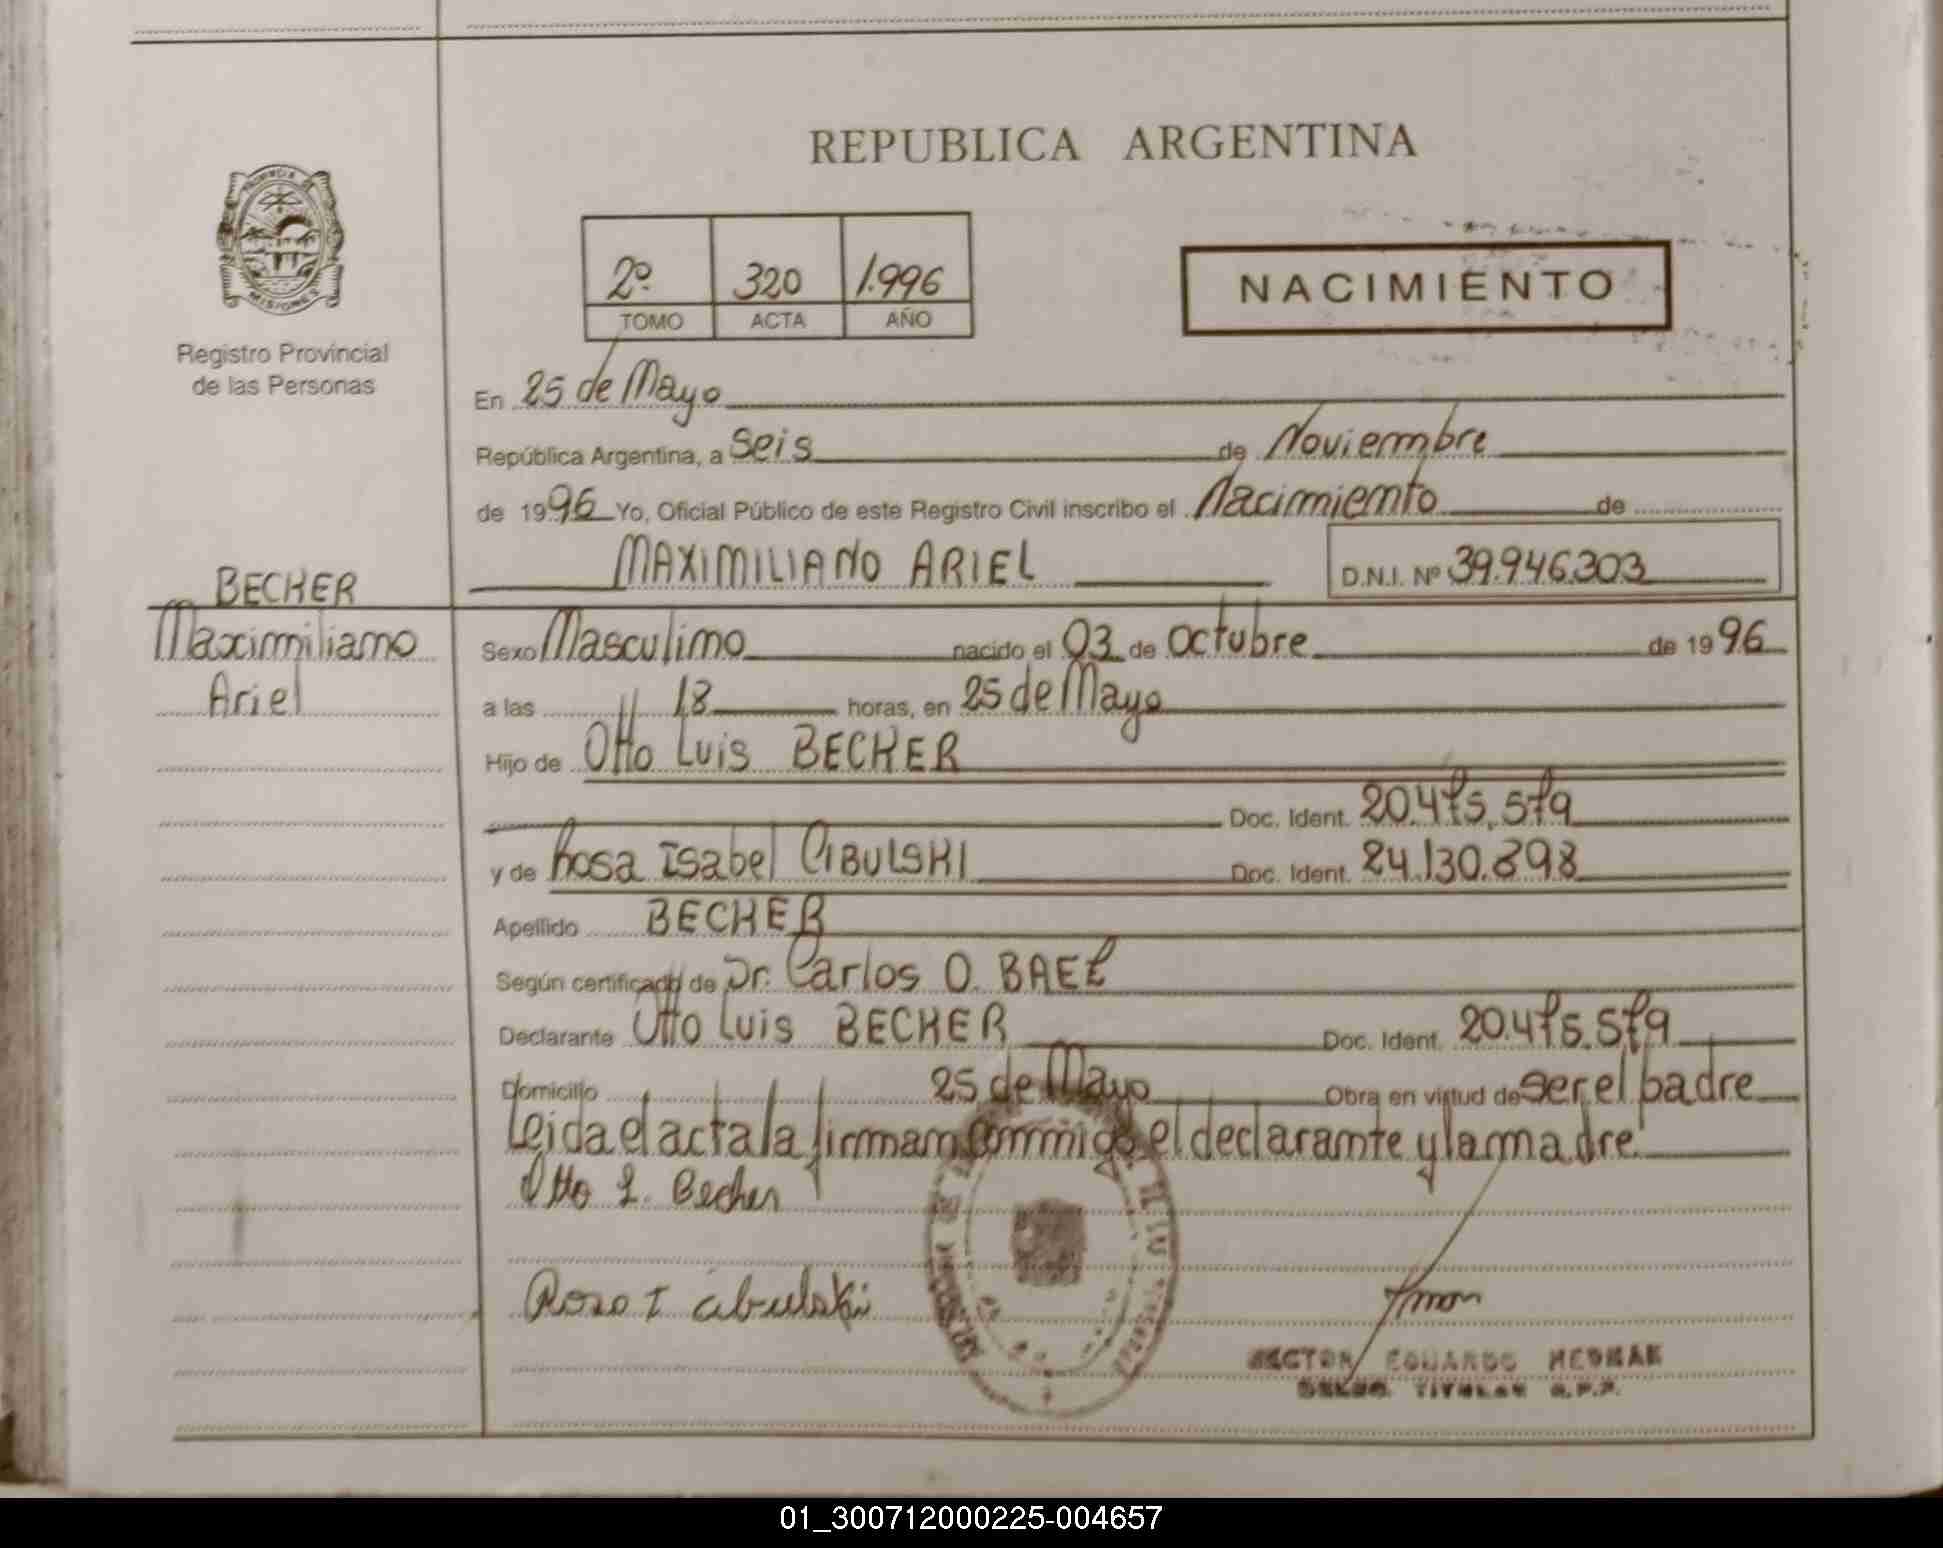 REPUBLICA ARGENTINA
PROVINCIA DE MISIONES
Registro Provincial
de las Personas
2º 320 1.996
TOMO ACTA AÑO
NACIMIENTO
En 25 de Mayo
República Argentina, a Seis de Noviembre
de 1996 Yo, Oficial Público de este Registro Civil inscribo el Nacimiento de
MAXIMILIANO ARIEL D.N.I. Nº 39.946.303
BECHER
Maximiliano
Ariel
Sexo Masculino nacido el 03 de octubre de 1996
a las 18 horas, en 25 de Mayo
Hijo de Otto Luis BECHER
Doc. Ident. 20.475.579
y de Rosa Isabel CIBULSKI Doc. Ident. 24.130.898
Apellido BECHER
Según certificado de Dr. Carlos O. BAEZ
Declarante Otto Luis BECHER Doc. Ident. 20.475.579
Domicilio 25 de Mayo Obra en virtud de ser el padre
Leida el acta la firman conmigo el declarante y la madre
Otto L. Becher
Rosa I cibulski
HECTOR EDUARDO
TITULAR R.P.P.
01_300712000225-004657